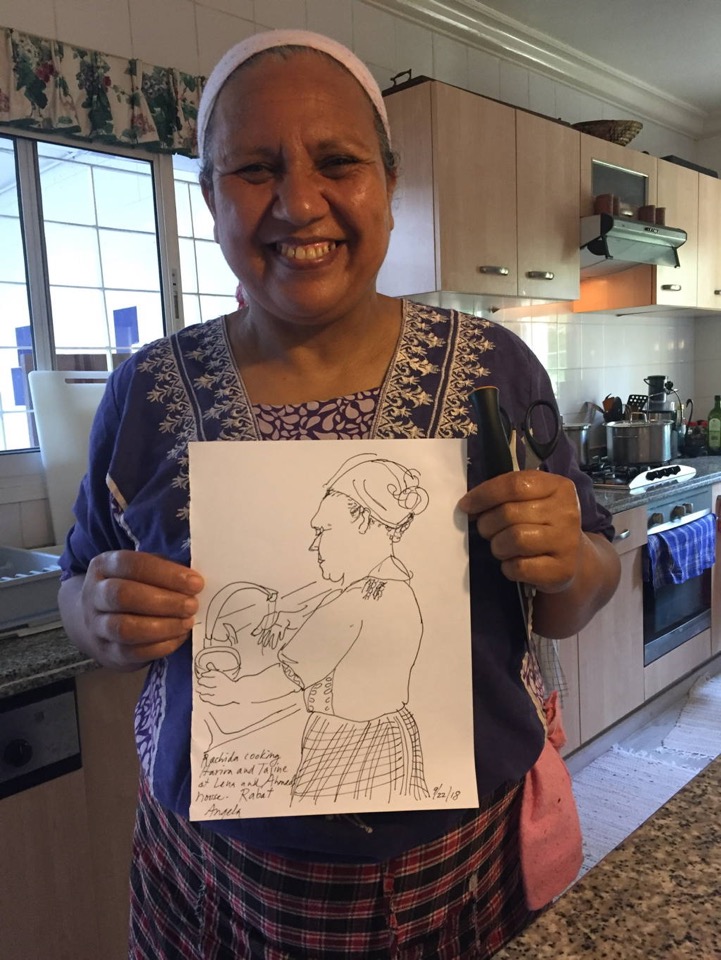 Rachida cooking
Harira and Tajine
at Lena and Ahmeds
house. Rabat
Angela
9/22/18